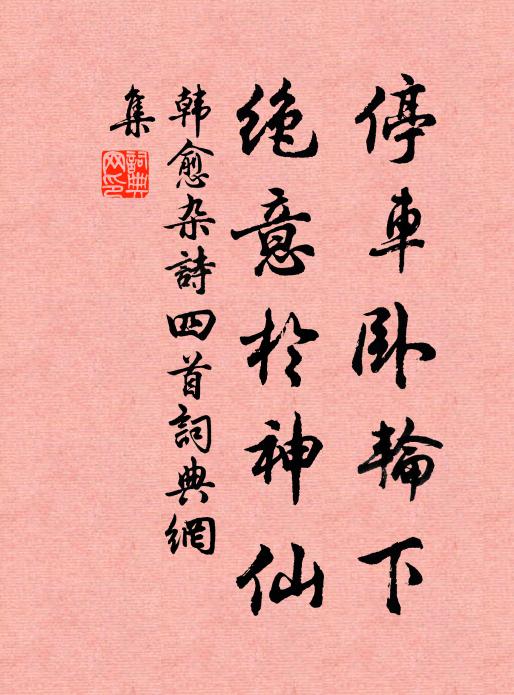 停車臥輪下
绝意於神仙
韩愈杂詩四首詞典網
集
詞典
网印